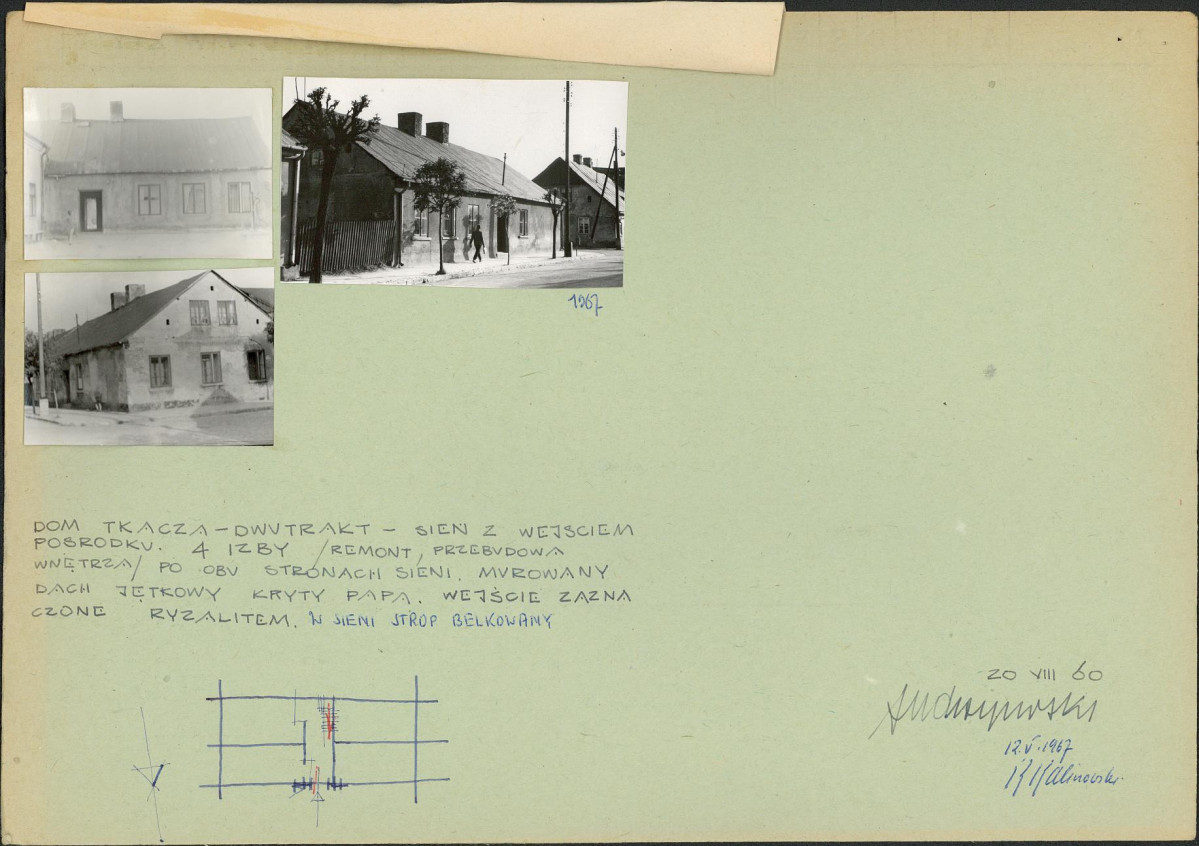 1967
DOM TKACZA – DWUTRAKT – SIEN Z WEJSCIEM
POSRODKU. 4 IZBY /REMONT, PRZEBUDOWA
WNĘTRZA/ PO OBU STRONACH SIENI. MUROWANY
DACH JĘTKOWY KRYTY PAPA. WEJŚCIE ZAZNA
CZONE RYZALITEM. W SIENI STROP BELKOWANY
20 VIII 60
12.V.1967
K Kalinowski.